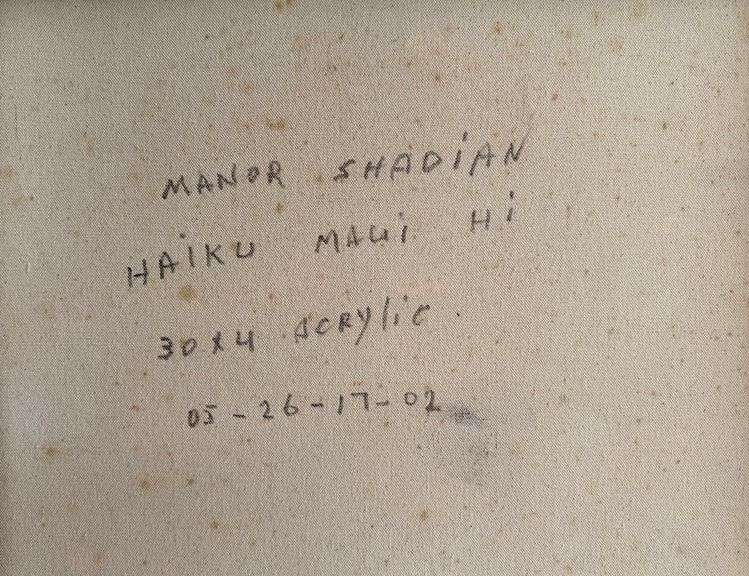 MANOR SHADiAN
HAiKU MAUi Hi
30x4 ACRYlic.
05-26-17-02